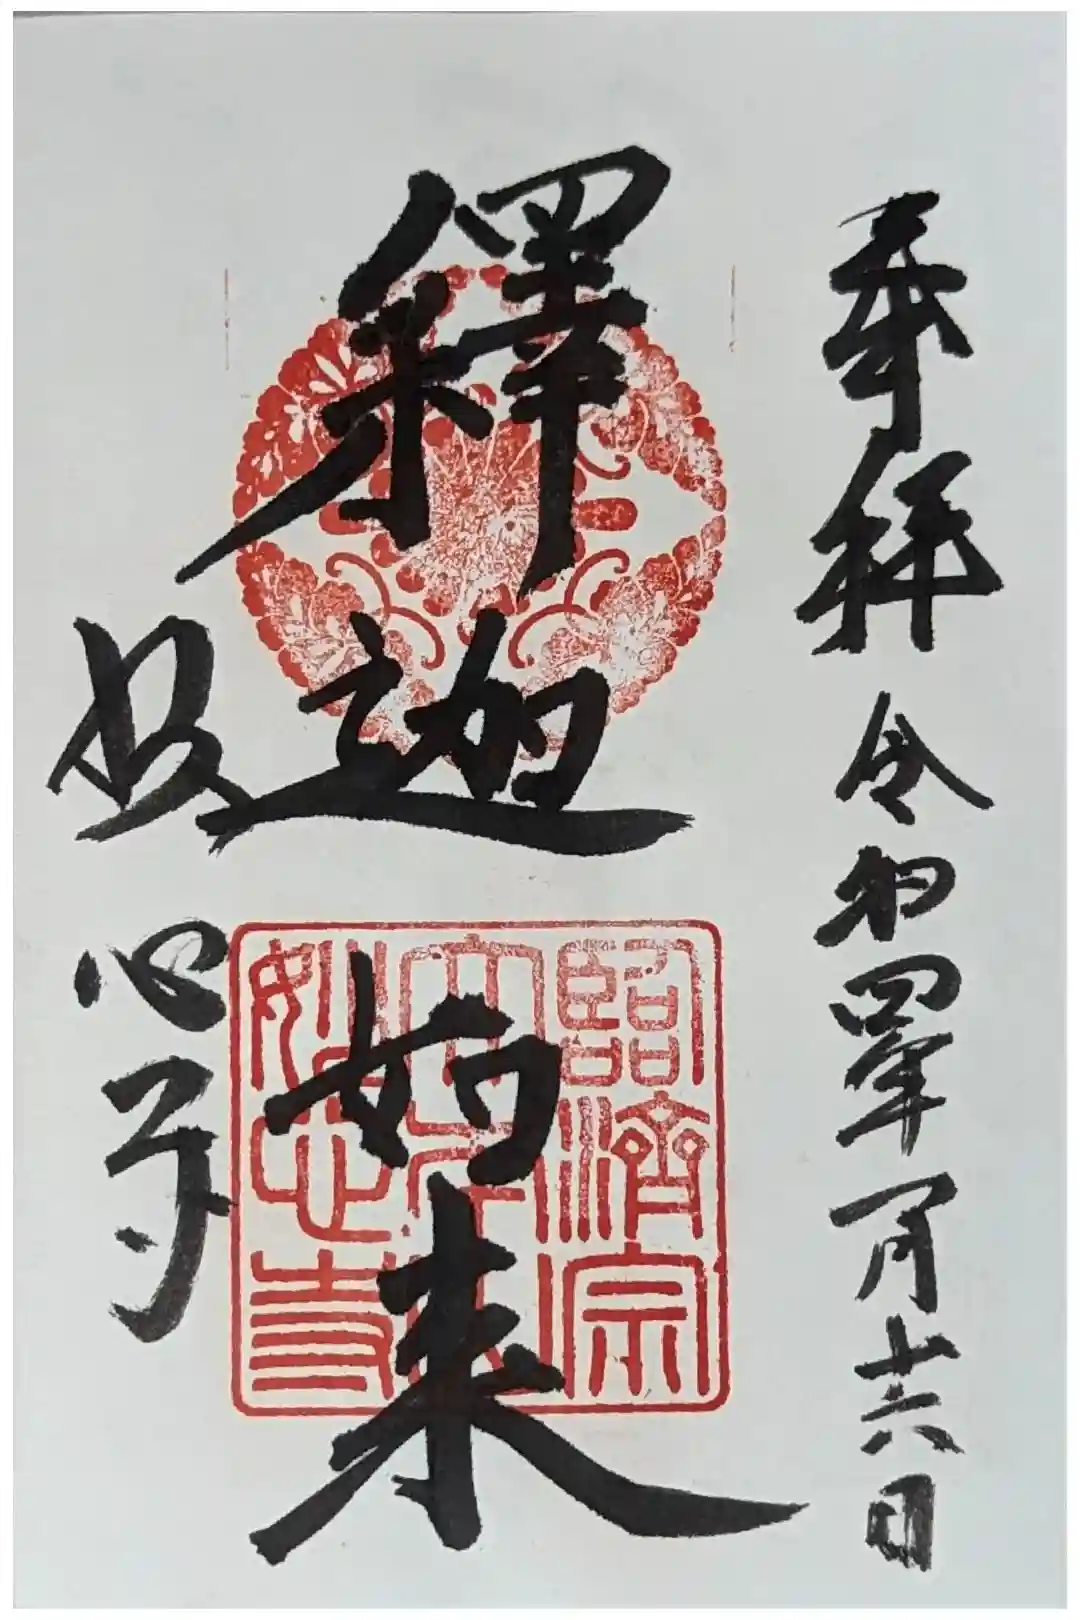 奉拝 令和四年一月十六日
釋迦如来
妙心寺
臨濟宗
妙心寺